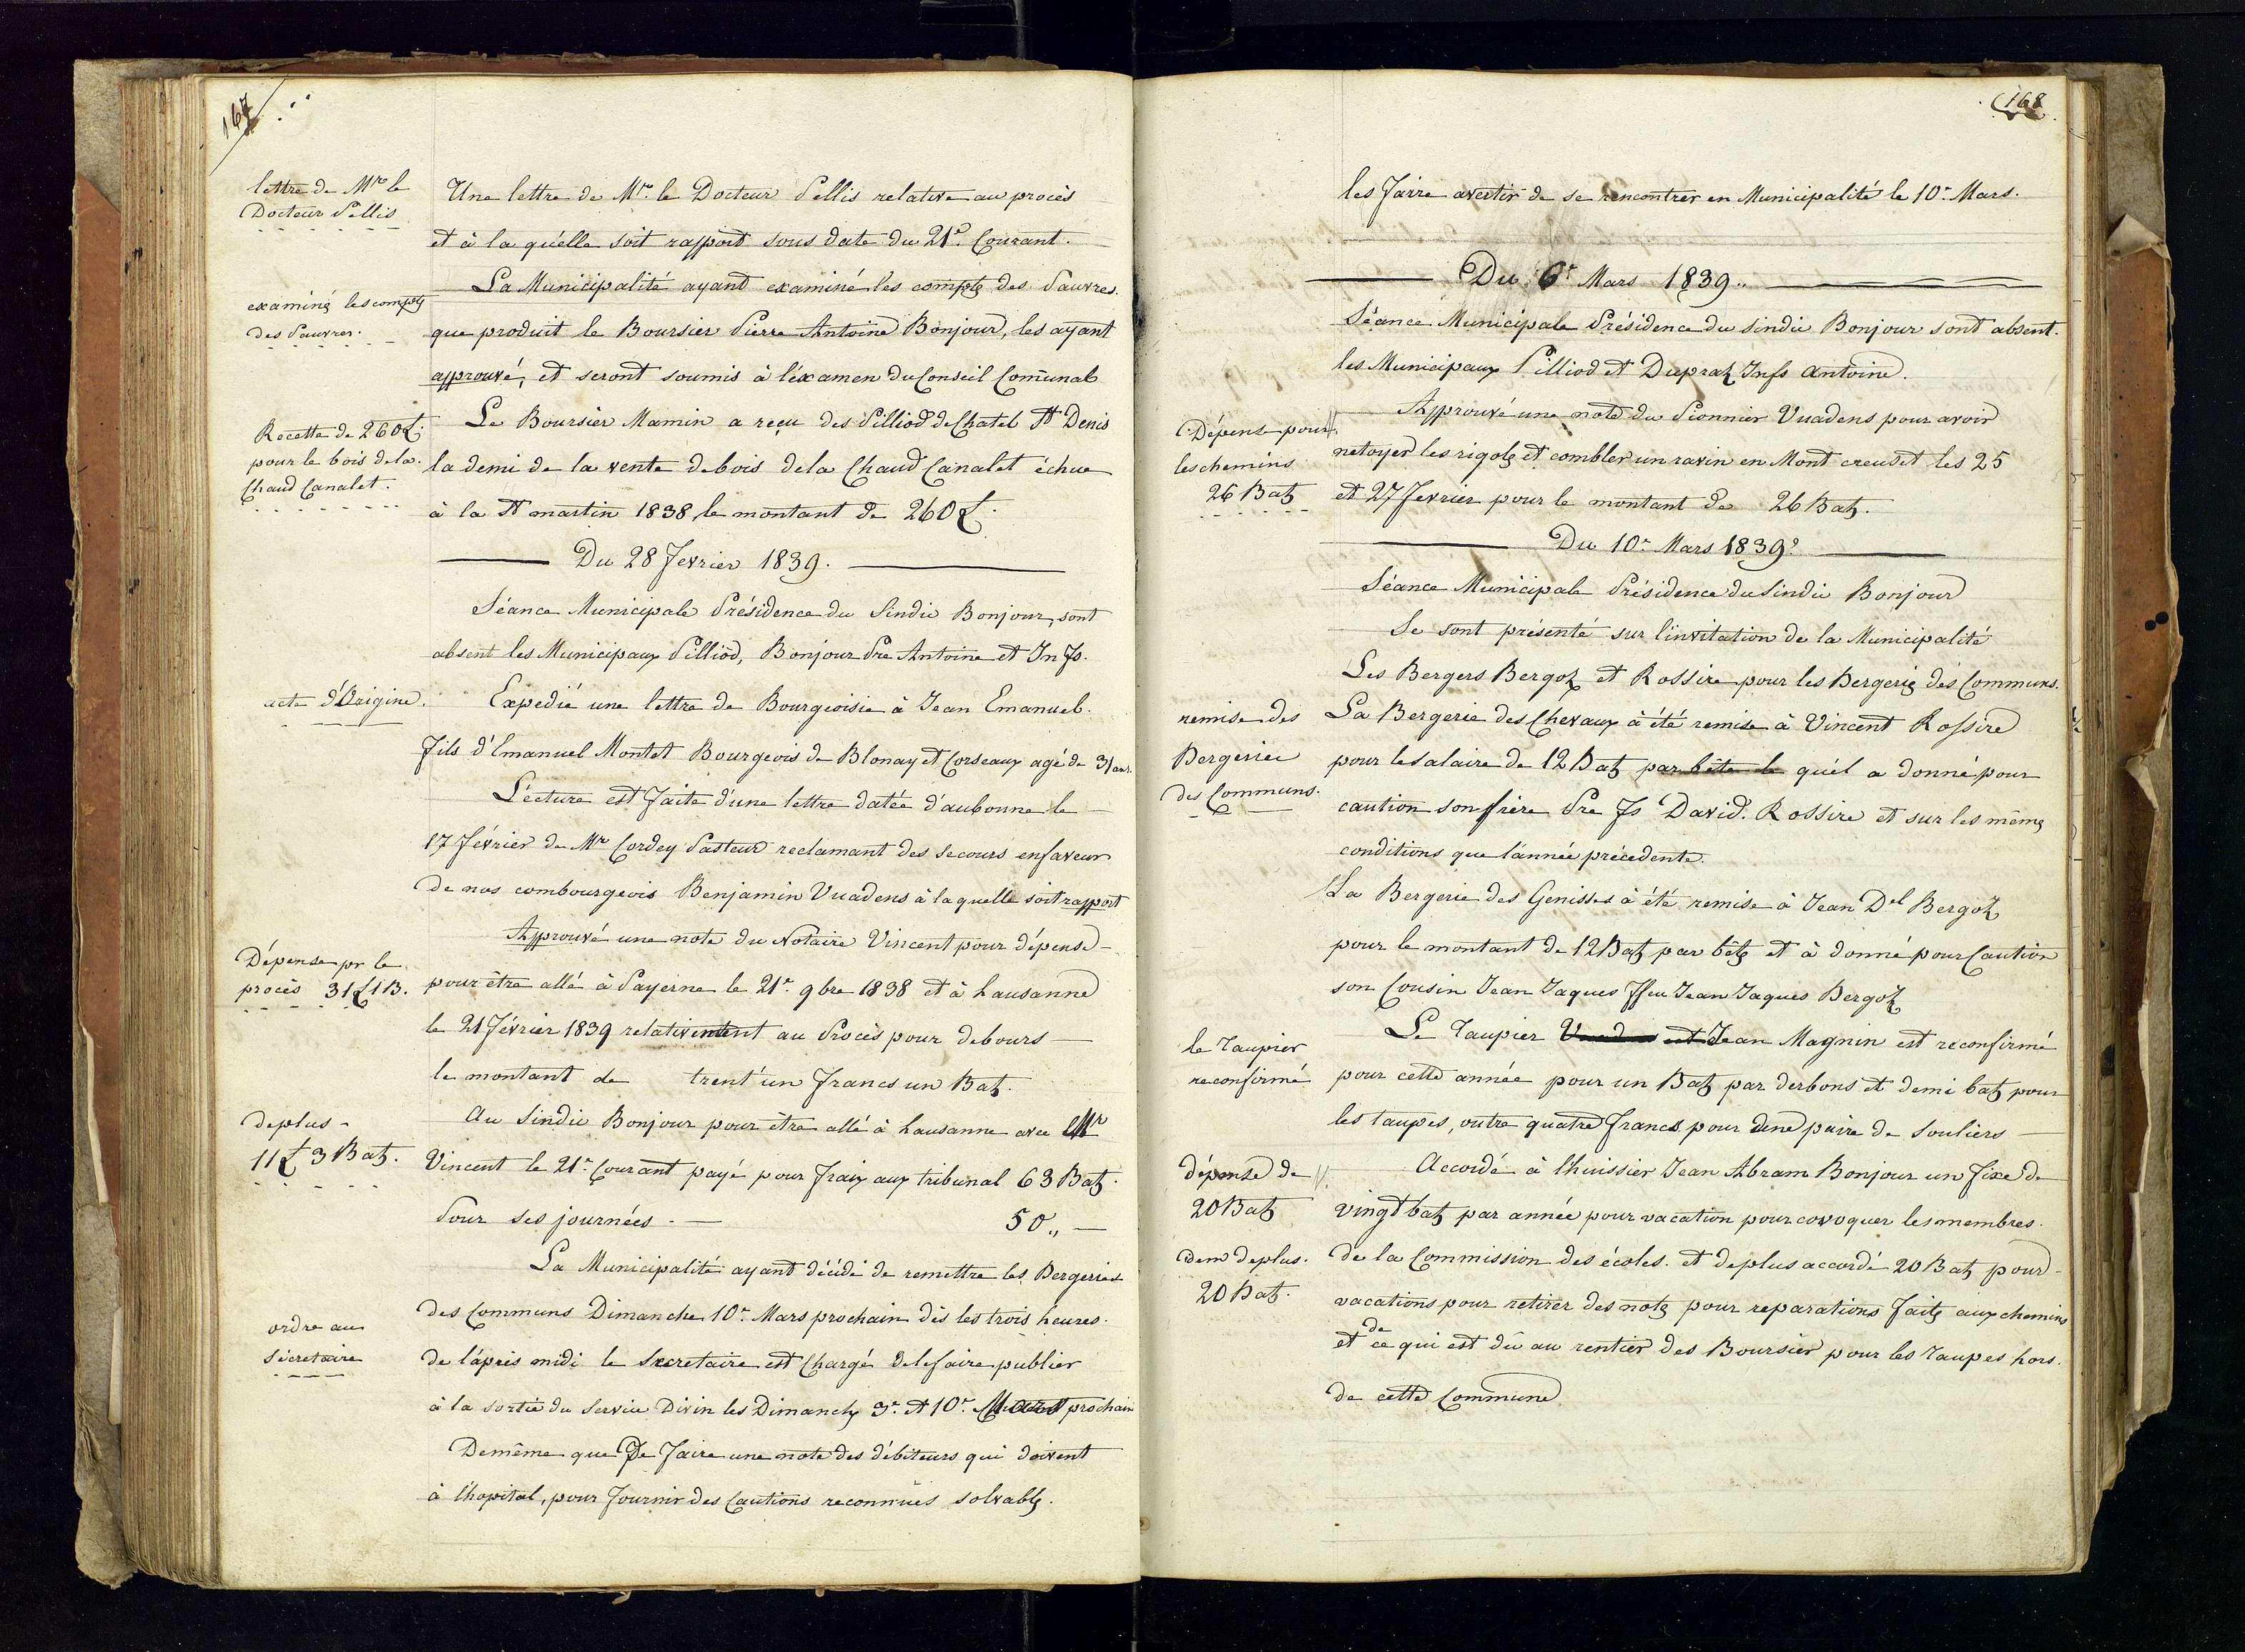 167
lettre de Mr le
Docteur Pellis
Une lettre de Mr. le Docteur Pellis relative au procès
et à la qu'elle soit rapport sous date du 21e. Courant.
examinę les comptę
des Pauvres.
La Municipalité ayant examiné les comptę des Pauvres.
que produit le Boursier Pierre Antoine Bonjour, les ayant
approuvé, et seront soumis à l'éxamen du Conseil Comunal
Recette de 260 L.
pour le bois dela
Chaud Canalet.
Le Boursier Mamin a reçu des Pilliod de Chatel St Denis
la demi de la vente debois dela Chaud Canalet échue
à la St martin 1838 le montant de 260 L.
Du 28 Fevrier 1839.
Séance Municipale Présidence du Sindic Bonjour, sont
absent les Municipaux Pilliod, Bonjour Pre Antoine et Jn Fs.
acte d'Origine.
Expedié une lettre de Bourgeoisie à Jean Emanuel.
fils d'Emanuel Montet Bourgeois de Blonay et Corseaux agé de 31 ans.
Lécture est faite d'une lettre datée d'aubonne le
17 février de Mr Cordey Pasteur reclamant des secours enfaveur
de nos combourgeois Benjamin Vuadens à laquelle soit rapport
Dépense pr le
procès 31 L 1 B.
Approuvé une note du Notaire Vincent pour dépense
pour être allé à Payerne le 21e. 9bre 1838 et à Lausanne
le 21 Février 1839 relativement au Procès pour debours
le montant de trent'un francs un Batz.
deplus
11 L 3 Batz.
Au Sindic Bonjour pour être allé à Lausanne avec Mr
Vincent le 21e. Courant payé pour fraix aux tribunal 63 Batz.
Pour ses journées . — 50 „ —
La Municipalité ayant décidé de remettre les Bergeries
des Communs Dimanche 10e. Mars prochain dès les trois heures.
ordre au
Sécretaire
de l'après midi le Secretaire est Chargé delefaire publier
à la sortie du Service Divin les Dimanchę 3e. et 10e. Mars prochain
Demême que De faire une note des débiteurs qui doivent
à l'hopital, pour fournir des Cautions reconnues solvablę.
168
les faire avertir de se rencontrer en Municipalité le 10e. Mars.
Du 6e Mars 1839.
Séance Municipale Présidence du Sindic Bonjour sont absent.
les Municipaux Pilliod et Dupraz Jn fs Antoine.
Dépense pour
les chemins
26 Batz
Approuvé une note du Pionnier Vuadens pour avoir
netoyer les rigolę et combler un ravin en Mont creuset les 25
et 27 Fevrier pour le montant de 26 Batz.
Du 10e. Mars 1839.
Séance Municipale Présidence du Sindic Bonjour
Se sont présenté sur l'invitation de la Municipalité
Les Bergers Bergoz et Rossire pour les Bergerię des Communs.
remise des
Bergeries
des Communs.
La Bergerie des Chevaux à été remise à Vincent Rossire
pour lesalaire de 12 Batz par bête le quél a donné pour
caution son frère Pre Fs David. Rossire et sur les mêmę
conditions que l'année précedente.
La Bergerie des Genisses à été remise à Jean Del Bergoz
pour le montant de 12 Batz par bêtę et à donné pour Caution
son Cousin Jean Jaques ffeu Jean Jaques Bergoz
le Taupier
reconfirmé
Le Taupier Jean Magnin est reconfirmé
pour cette année pour un Batz par derbons et demi batz pour
les taupes, outre quatre francs pour une paire de souliers
dépense de
20 Batz
Accordé à l'huissier Jean Abram Bonjour un fixe de
vingt batz par année pour vacation pour covoquer les membres.
idem deplus.
20 Batz.
de la Commission des écoles. et deplus accordé 20 Batz pour
vacations pour retirer des notę pour reparations faitę aux chemins
et de ce qui est dû au rentier des Boursier pour les Taupes hors.
de cette Commune